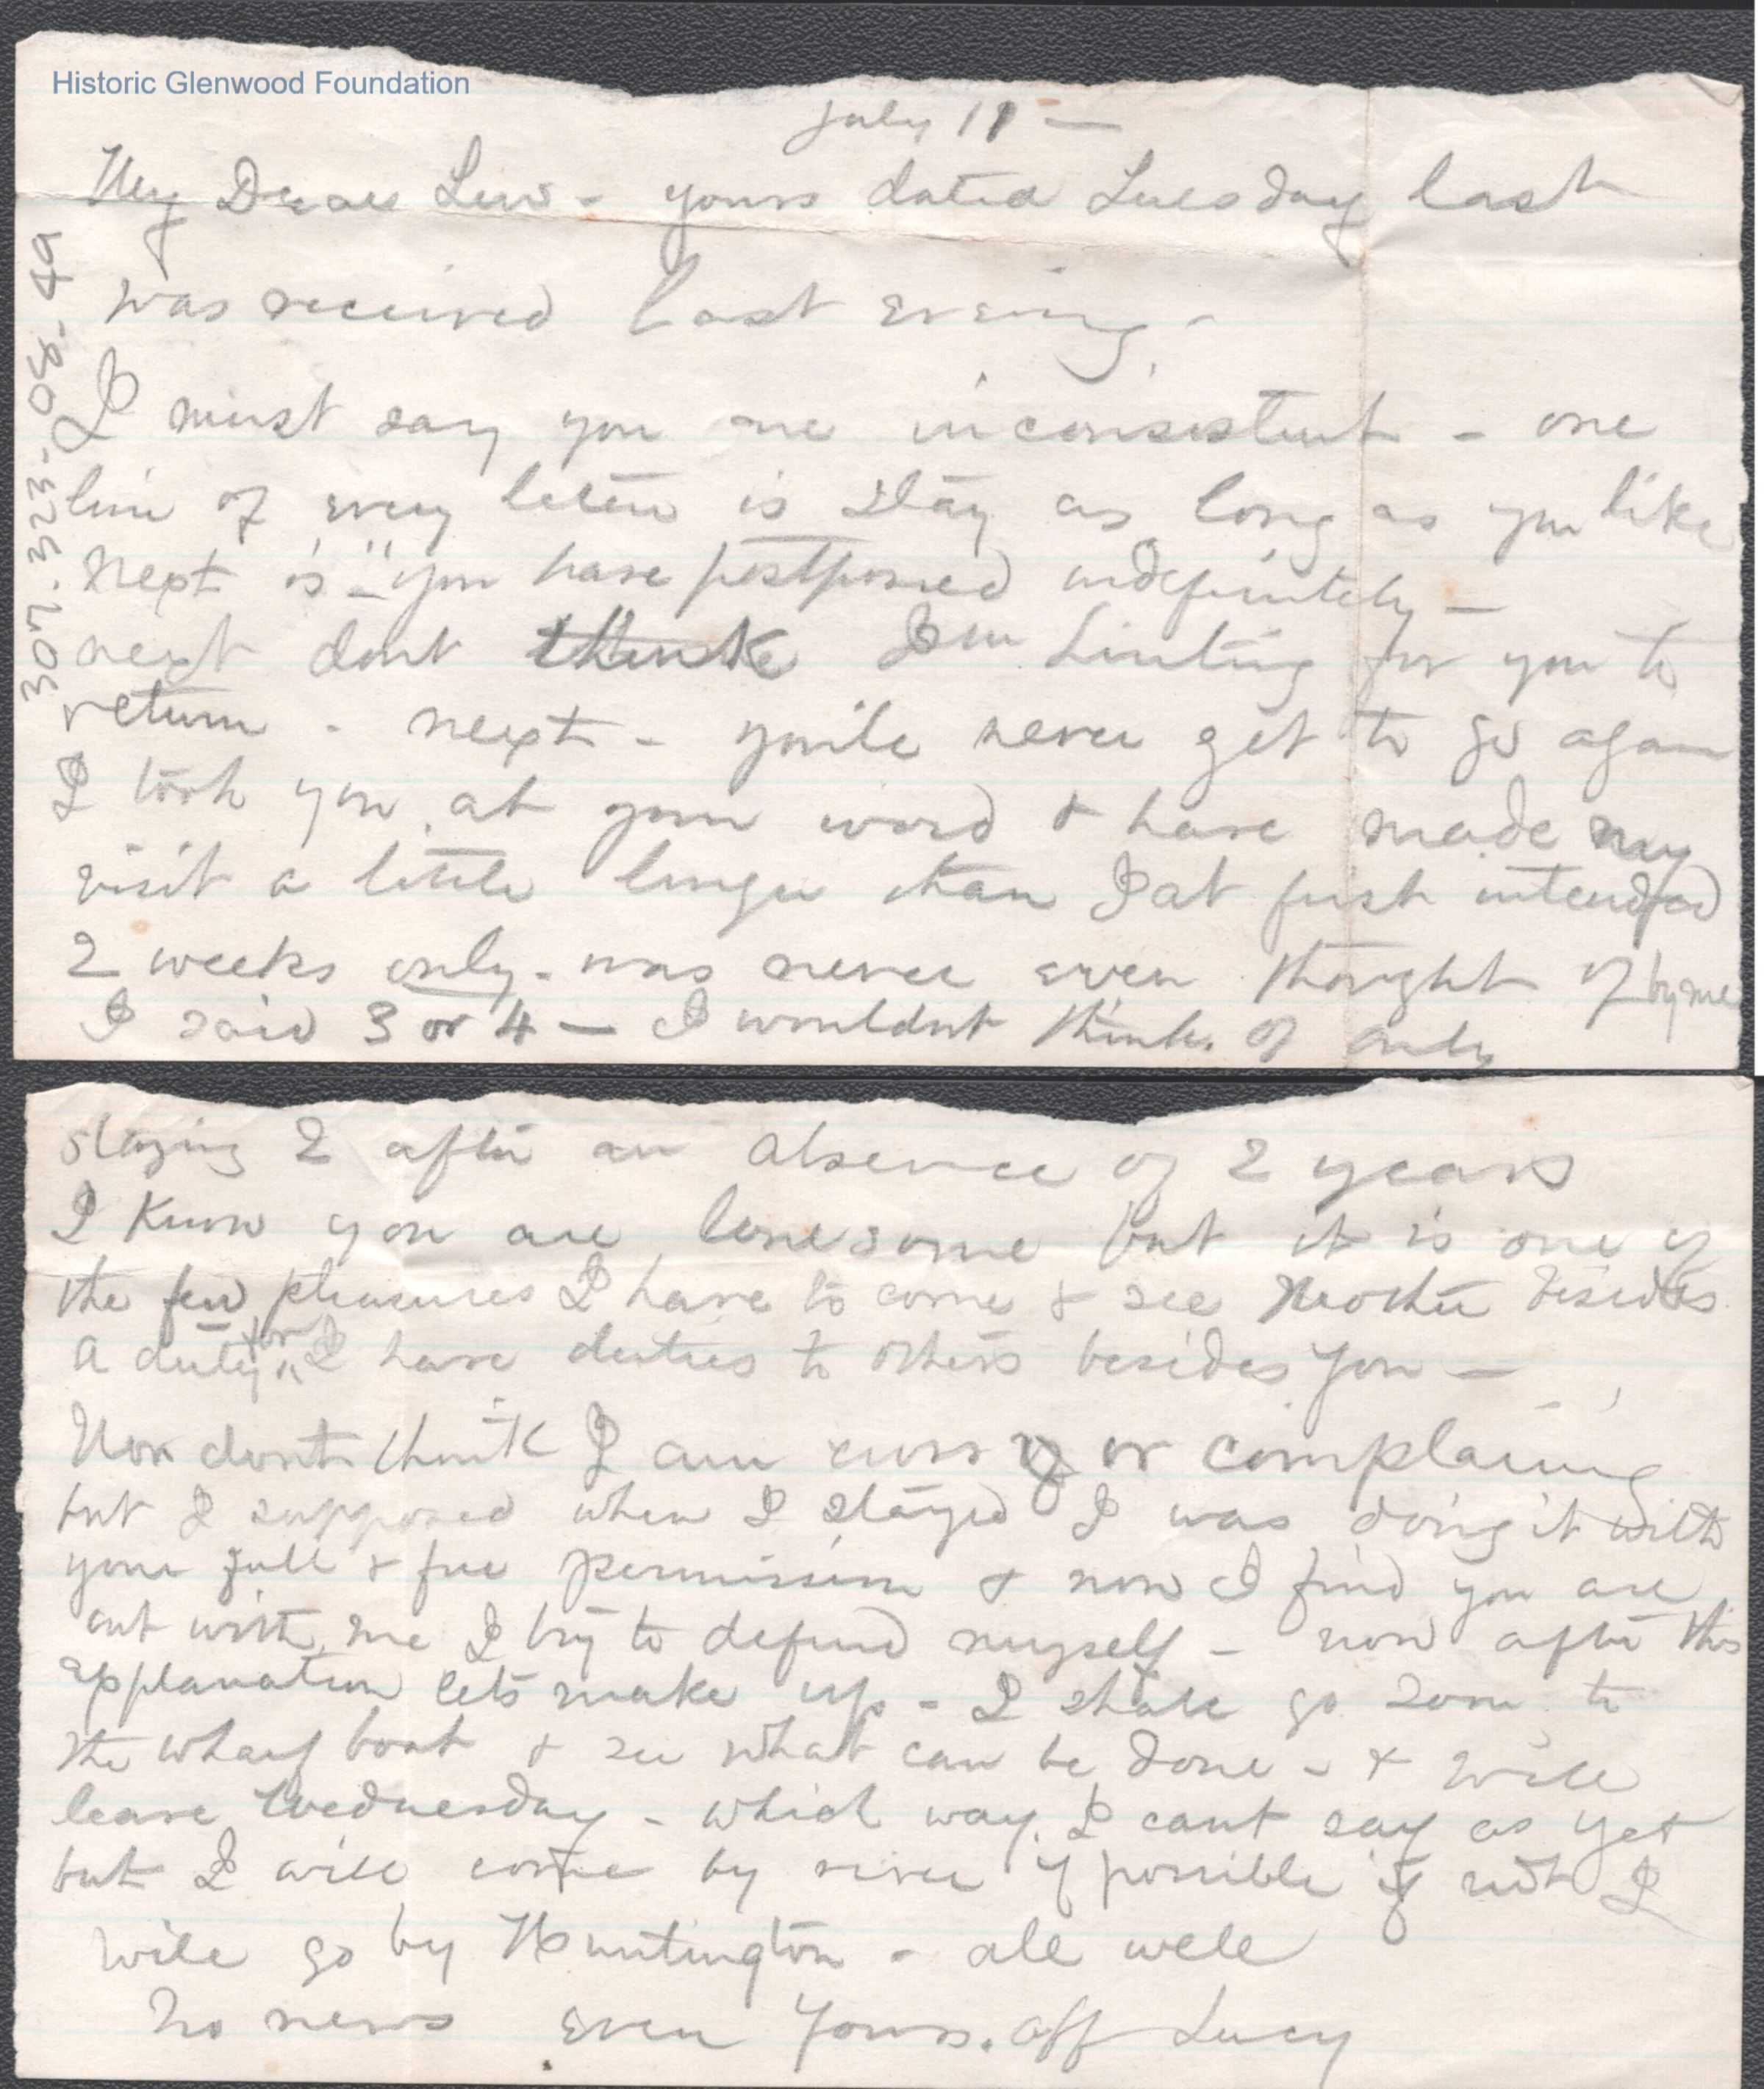 Historic Glenwood Foundation
July 11 —
My Dear Lew - yours dated Tuesday last
was received last evening -
I must say you are inconsistent - one
line of every letter is stay as long as you like
next is - "you have postponed indefinitely —
next dont think I'm hinting for you to
return - next - you'le never get to go again
I took you at your word & have made my
visit a little longer than I at first intended
2 weeks only - was never even thought of by me
I said 3 or 4 — I wouldnt think of only
307.323-08-49
staying 2 after an absence of 2 years
I know you are lonesome but it is one of
the few pleasures I have to come & see Mother besides
a duty for I have duties to others besides you —
Now dont think I am cross or complaining
but I supposed when I stayed I was doing it with
your full & free permission & now I find you are
out with me I try to defend myself - now after this
explanation lets make up - I shall go down to
the wharf boat & see what can be done - & will
leave Wednesday - which way I cant say as yet
but I will come by river if possible if not I
will go by Huntington - all well
No news Ever Yours. aff Lucy